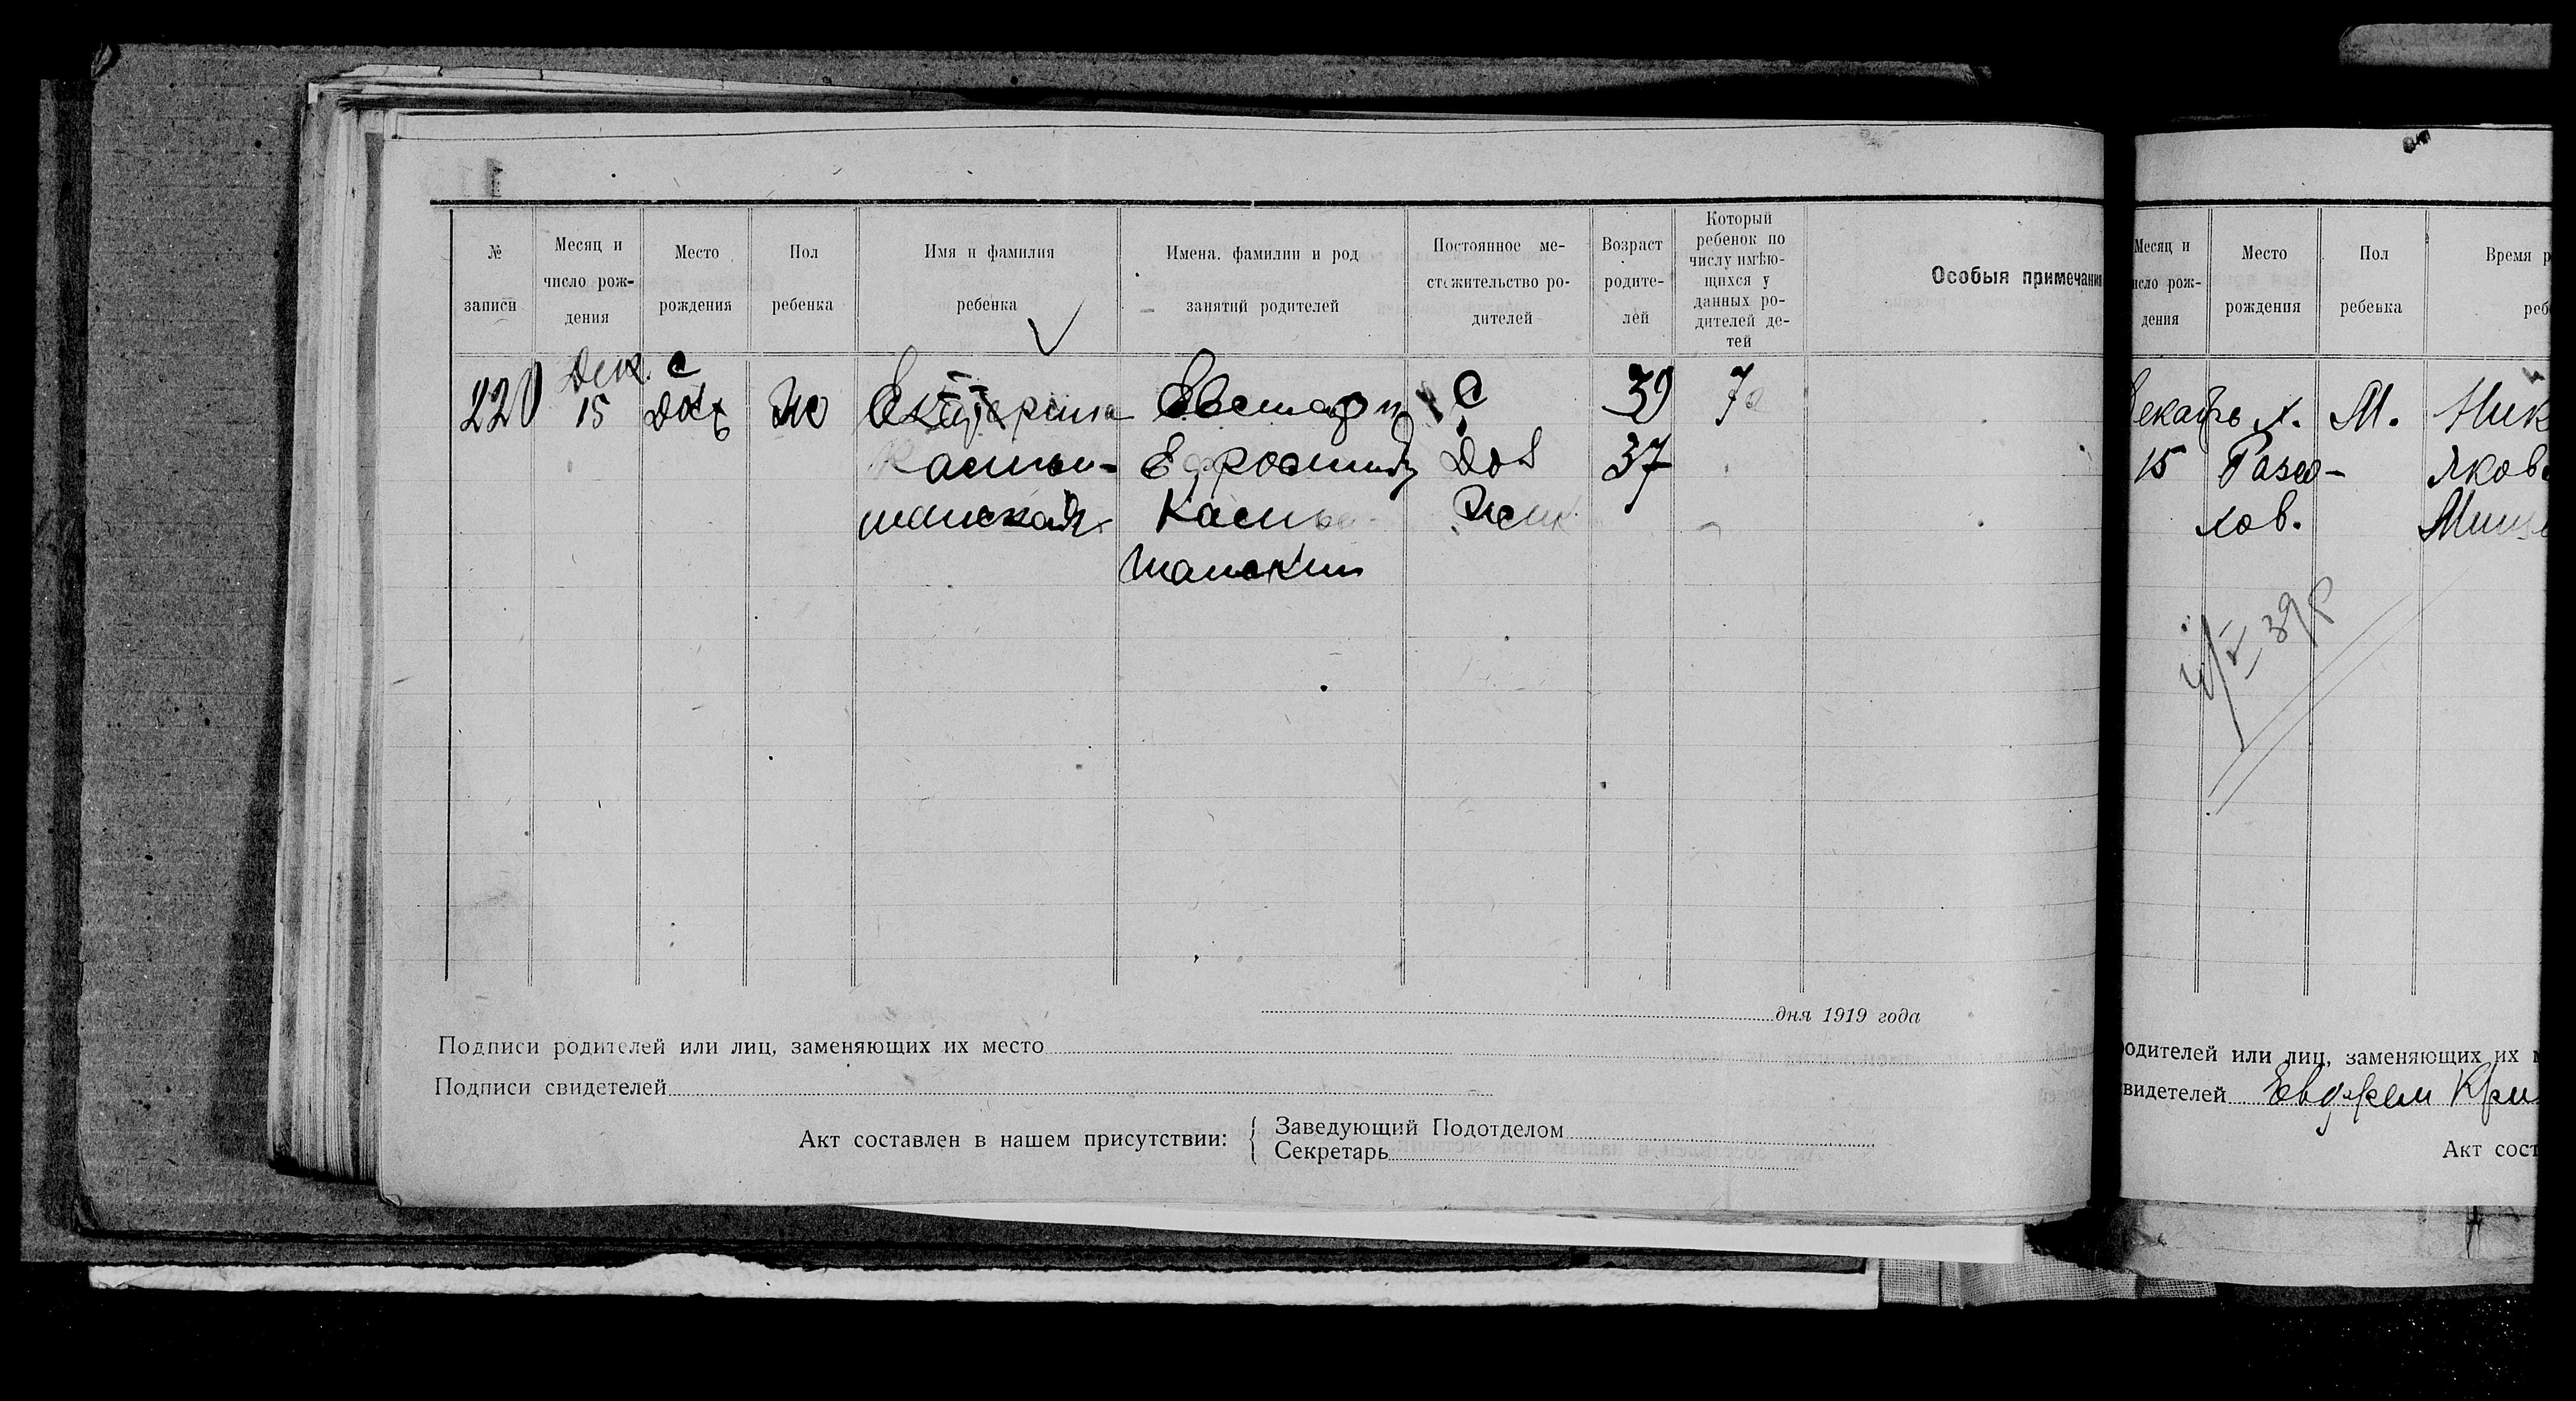 № записи
Месяц и число рож- дения
Место рождения
Пол ребенка
Имя и фамилия ребенка
Имена. фамилии и род занятий родителей
Постоянное ме- стожительство ро- дителей
Возраст родите- лей
Который ребенок по числу имѣю- щихся у данных ро- дителей де- тей
Особыя примечани
220
Дек.
15
с
Ж
Екатерина
Евстафи
С
39
7
Касты-
37
шанская
Касты
шанский
дня 1919 года
Подписи родителей или лиц, заменяющих их место
Подписи свидетелей
Акт составлен в нашем присутствии:
Заведующий Подотделом
Секретарь
Месяц и
исло рож-
дения
Место
рождения
Пол
ребенка
Время р
реб
екабрь х. М. Ник
15 Разсо- Яков
хов.
одителей или лиц, заменяющих их м
видетелей
Акт сост